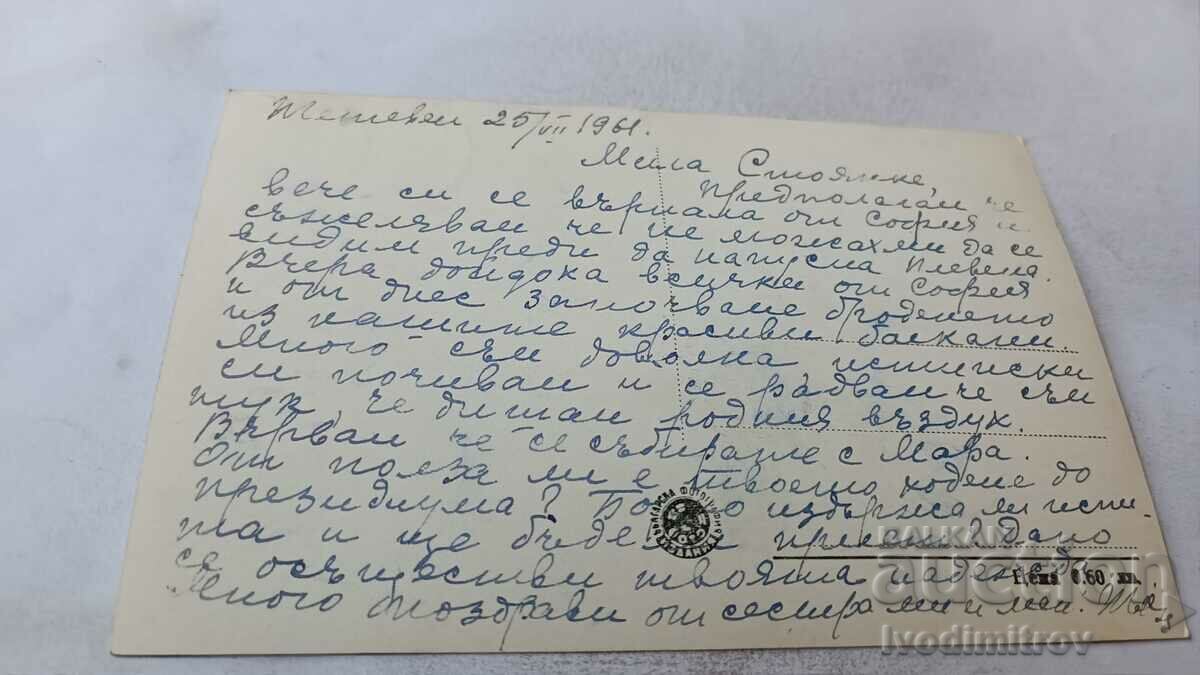 Тетевен 25/VII 1961.
Мила Стоянке,
Предполагам че
вече си се върнала от София и
съжелявам че не можахми да се
видим преди да напусна Плевена.
Вчера дойдоха всички от София
и от днес започваме броденето
из нашите красиви балкани.
Много съм доволна, истински
си почивам и се радвам че съм
тук, че дишам родния въздух.
Вярвам че се събирате с Мара.
От полза ли е твоето ходене до
президиума? издържа ли испи-
та и ще бъде приет? Дано
се осъществи твоята надежда.
Много поздрави от сестра ми и мен.
БЪЛГАРСКА ФОТОГРАФИЯ
Цена 0.60 лв.
BALKAN
auction
Ivodimitrov